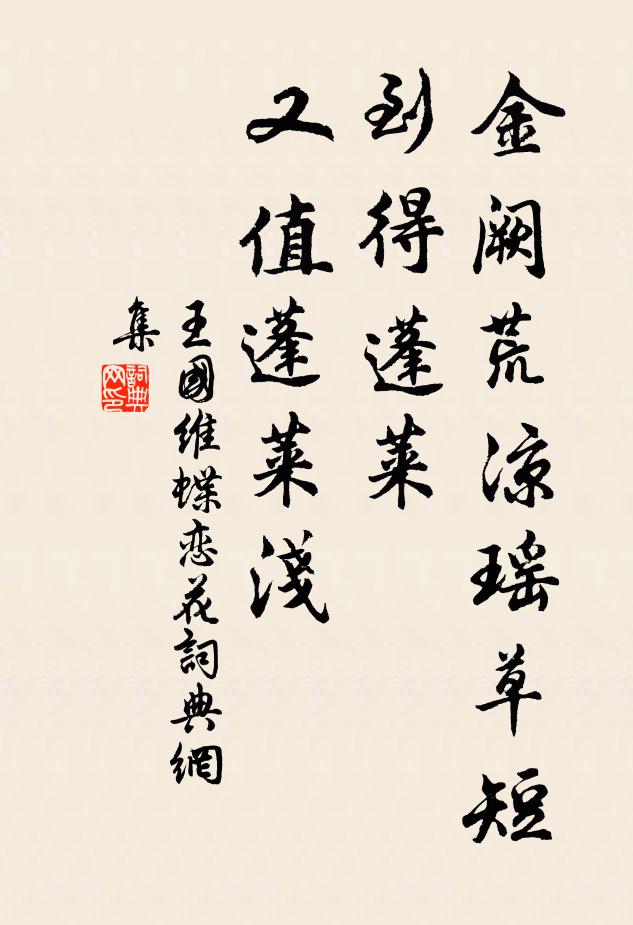 金阙荒凉瑶草短
到得蓬莱
又值蓬莱淺
王國维蝶恋花詞典網
集
詞典网印